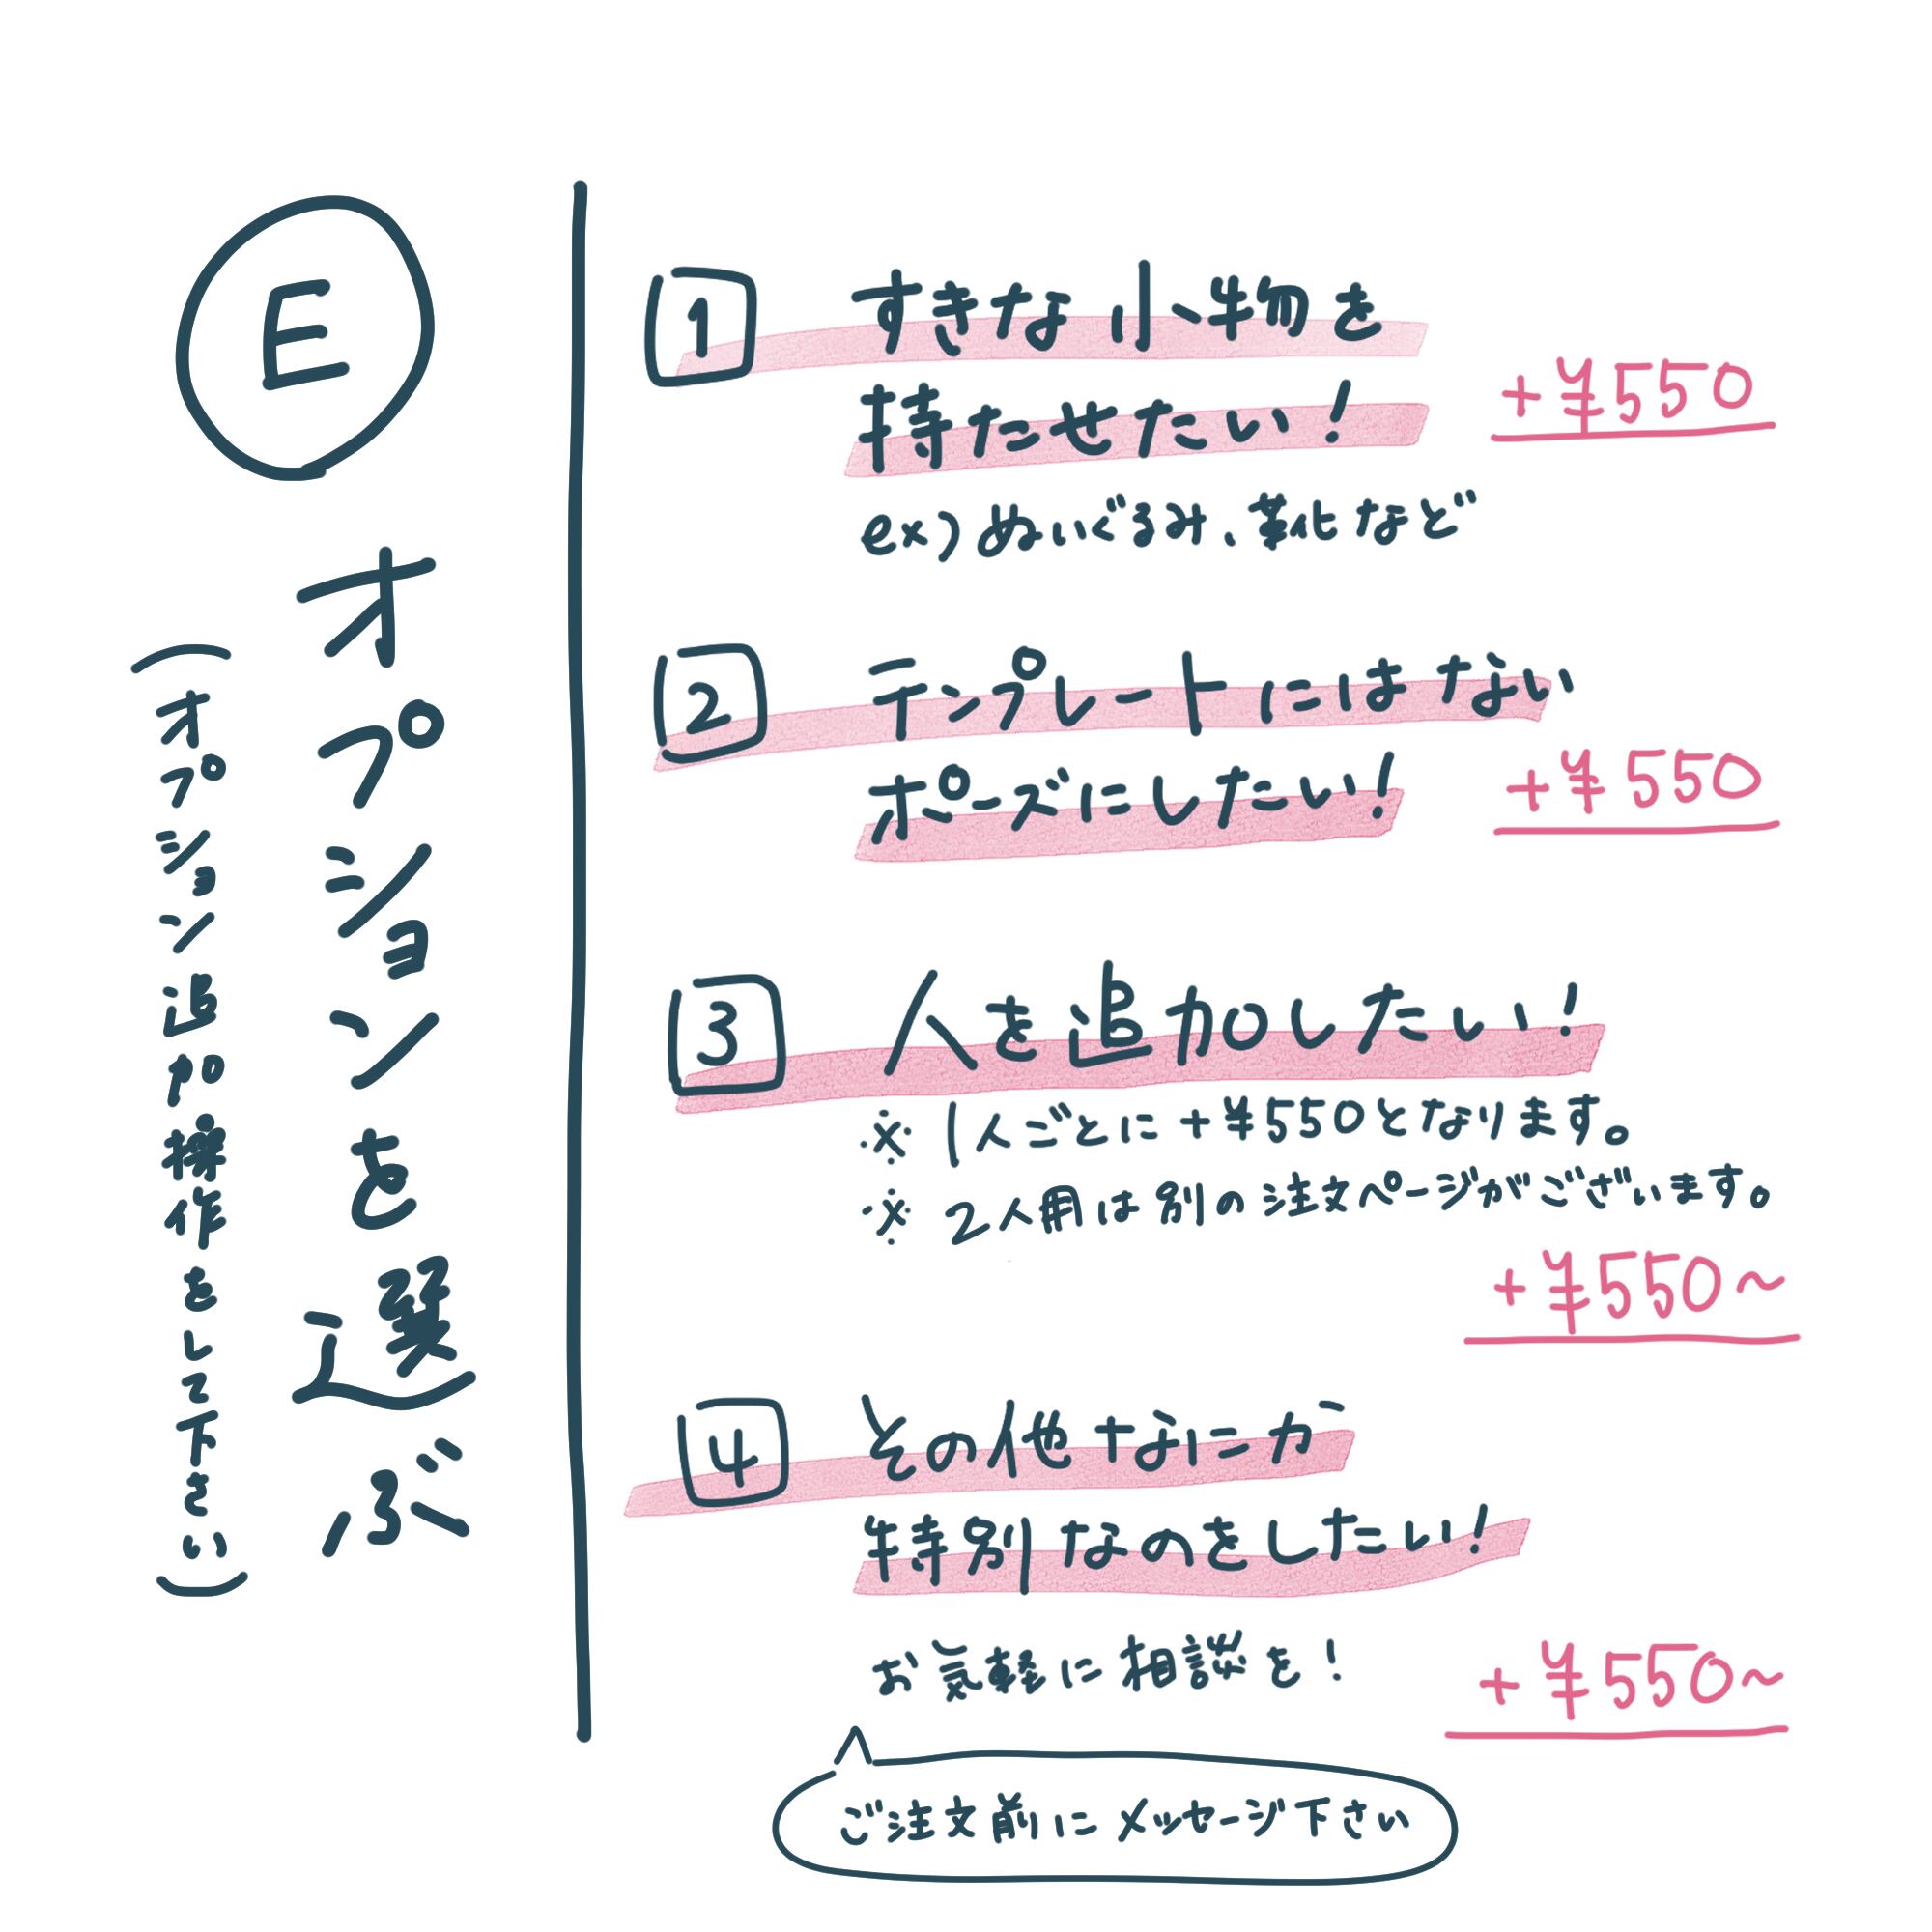 E
オプションを選ぶ
(オプション追加操作をして下さい)
1 すきな小物を
持たせたい!
+¥550
ex) ぬいぐるみ、靴など
2 テンプレートにはない
ポーズにしたい!
+¥550
3 人を追加したい!
※ 1人ごとに+¥550となります。
※ 2人用は別の注文ページがございます。
+¥550~
4 その他なにか
特別なのをしたい!
お気軽に相談を!
+¥550~
ご注文前にメッセージ下さい